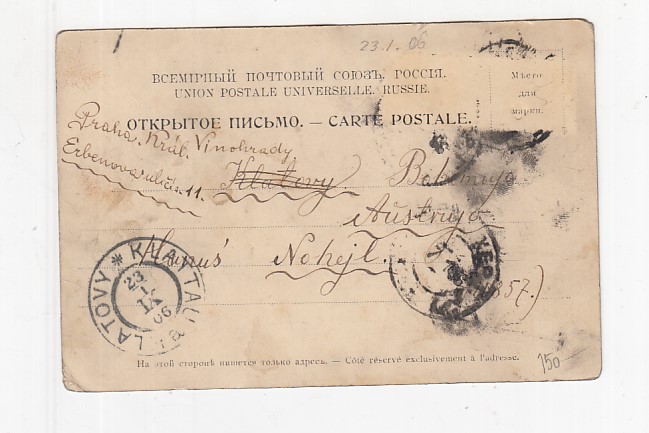 23.1.06
ВСЕМІРНЫЙ ПОЧТОВЫЙ СОЮЗЪ. РОССІЯ.
UNION POSTALE UNIVERSELLE. RUSSIE.
Мѣсто
для
марки.
ОТКРЫТОЕ ПИСЬМО. — CARTE POSTALE.
Praha. Král. Vinohrady
Erbenova ulice 11.
Klatovy.
Austrujo.
Nohejl
857.)
KLATTAU
KLATOVY
23
IX
06
На этой сторонѣ пишется только адресъ. — Côté réservé exclusivement à l'adresse.
150